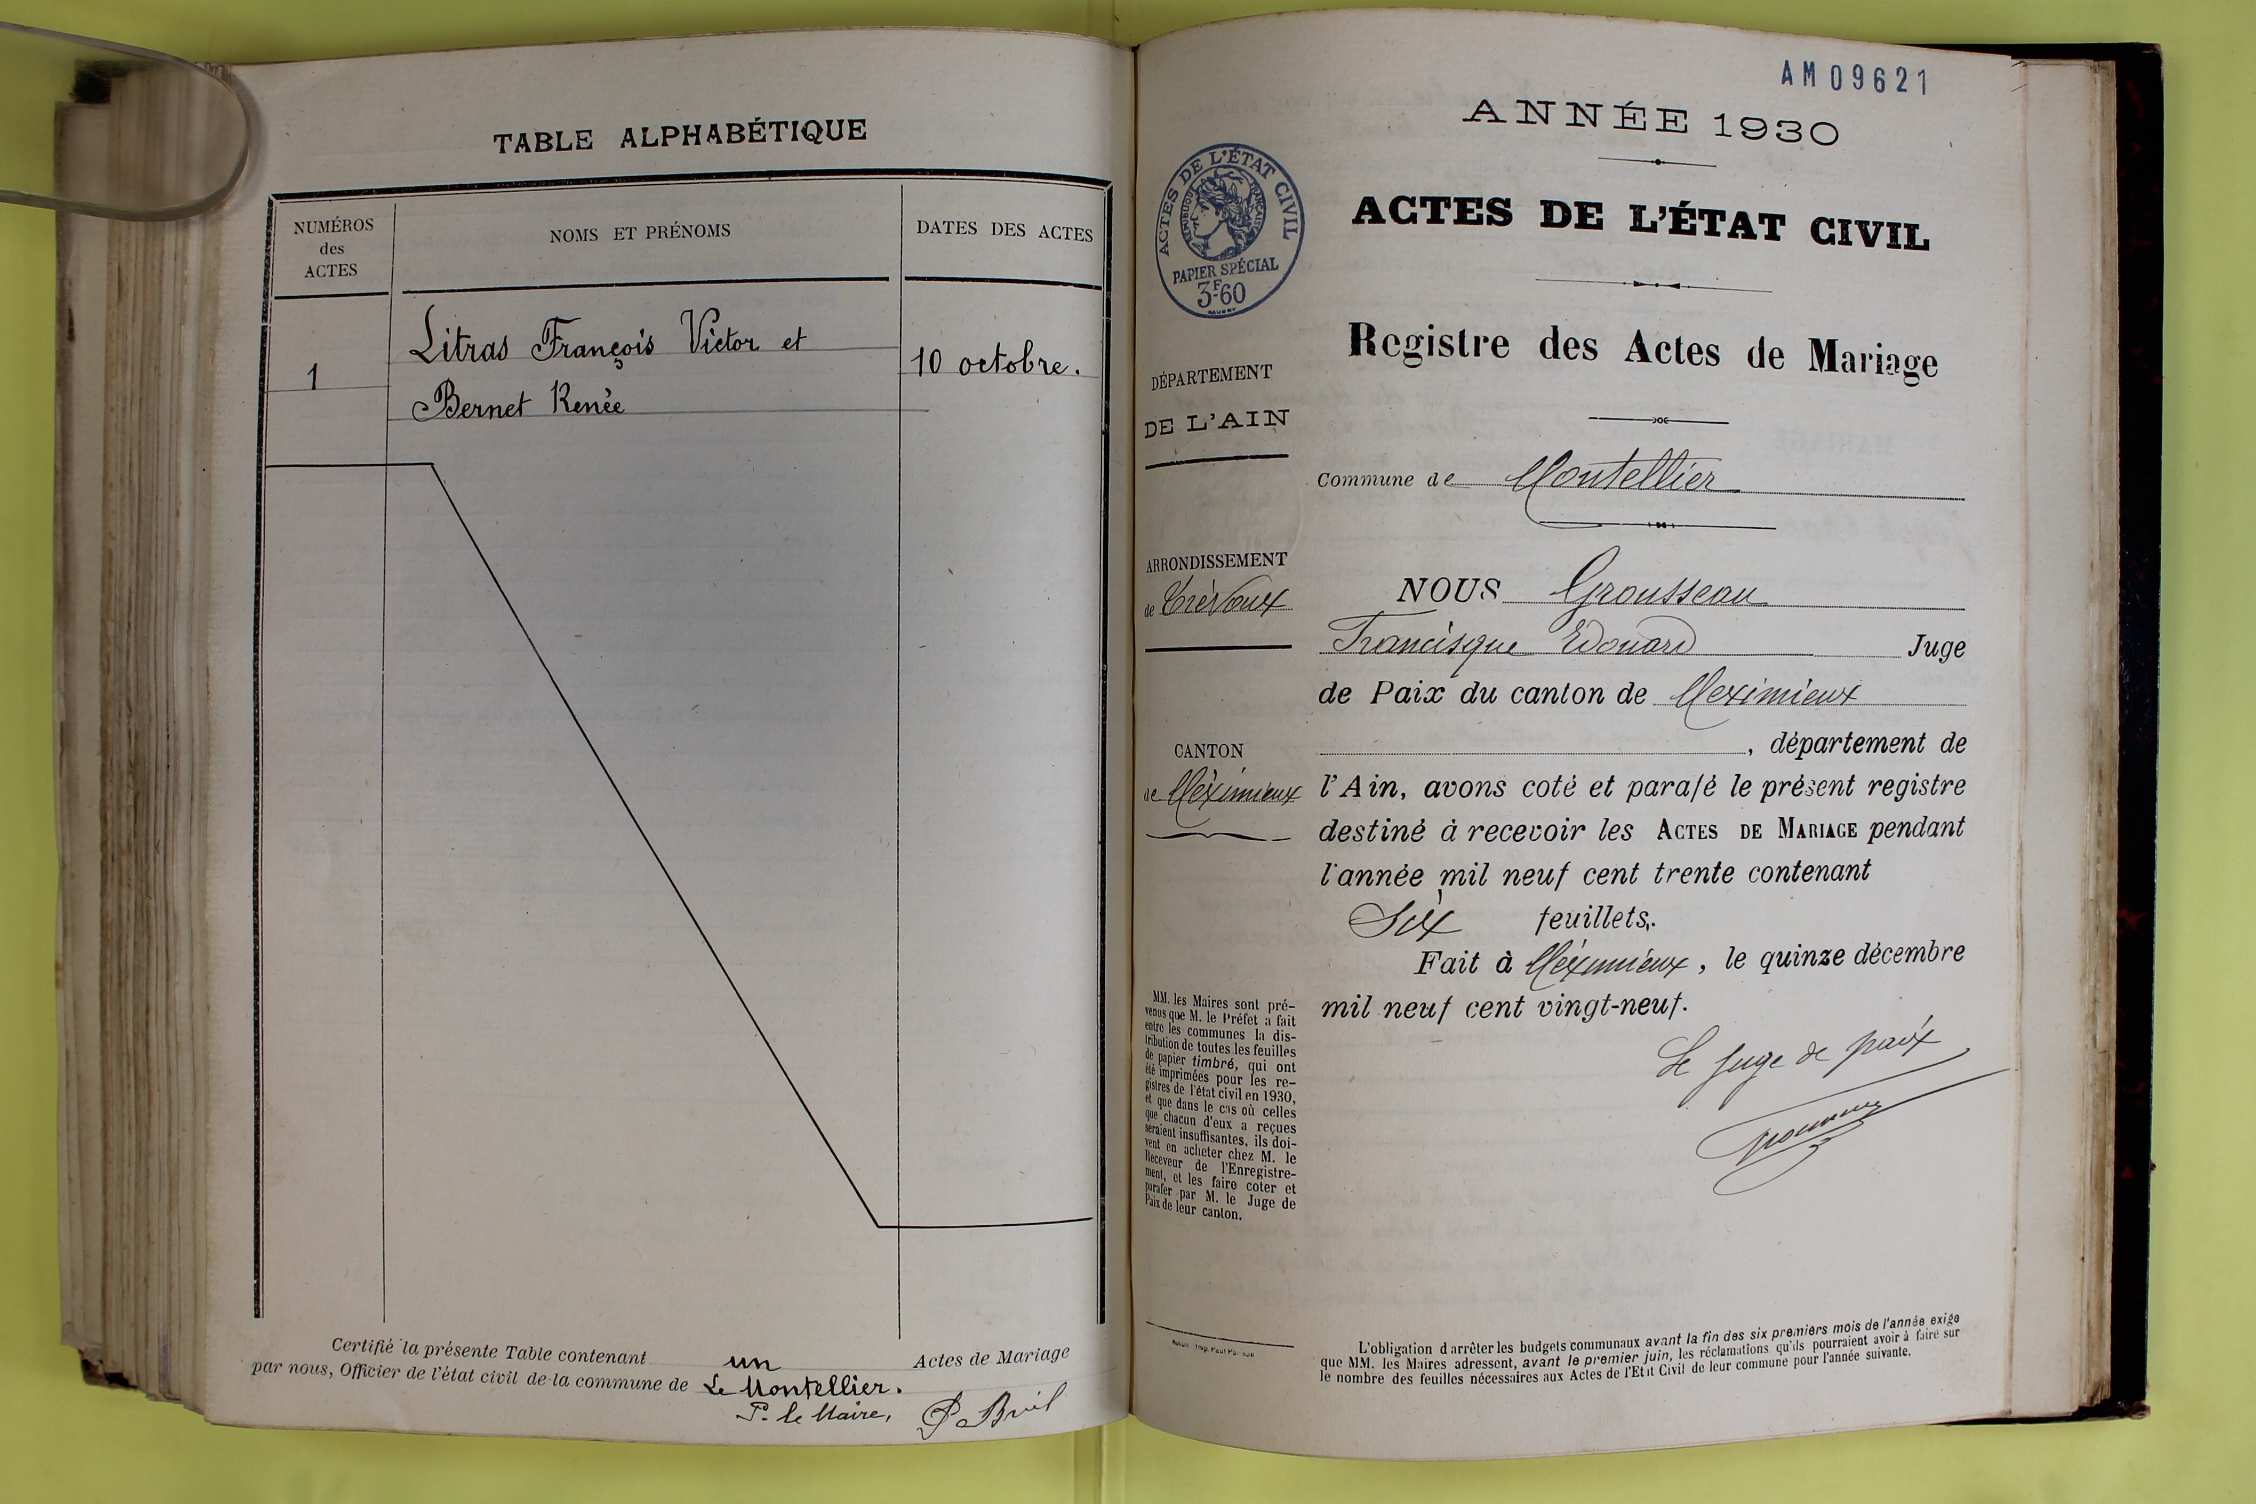 TABLE ALPHABÉTIQUE
NUMÉROS
des
ACTES
NOMS ET PRÉNOMS
DATES DES ACTES
1
Litras François Victor et
Bernet Renée
10 octobre.
Certifié la présente Table contenant un Actes de Mariage
par nous, Officier de l'état civil de la commune de Le Montellier.
P. le Maire,
AM09621
ANNÉE 1930
ACTES DE L'ÉTAT CIVIL
RÉPUBLIQUE FRANÇAISE
PAPIER SPÉCIAL
3F60
ACTES DE L'ÉTAT CIVIL
Registre des Actes de Mariage
DÉPARTEMENT
DE L'AIN
Commune de Montellier
ARRONDISSEMENT
de Trévoux
NOUS Grousseau
Francisque Edouard Juge
de Paix du canton de Meximieux
, département de
CANTON
de Méximieux
l'Ain, avons coté et parafé le présent registre
destiné à recevoir les ACTES DE MARIAGE pendant
l'année mil neuf cent trente contenant
Six feuillets.
Fait à Méximieux, le quinze décembre
mil neuf cent vingt-neuf.
Le Juge de paix
MM. les Maires sont pré-
venus que M. le Préfet a fait
entre les communes la dis-
tribution de toutes les feuilles
de papier timbré, qui ont
été imprimées pour les re-
gistres de l'état civil en 1930,
et que dans le cas où celles
que chacun d'eux a reçues
seraient insuffisantes, ils doi-
vent en acheter chez M. le
Receveur de l'Enregistre-
ment, et les faire coter et
parafer par M. le Juge de
Paix de leur canton.
L'obligation d'arrêter les budgets communaux avant la fin des six premiers mois de l'année exige
que MM. les Maires adressent, avant le premier juin, les réclamations qu'ils pourraient avoir à faire sur
le nombre des feuilles nécessaires aux Actes de l'Etat Civil de leur commune pour l'année suivante.